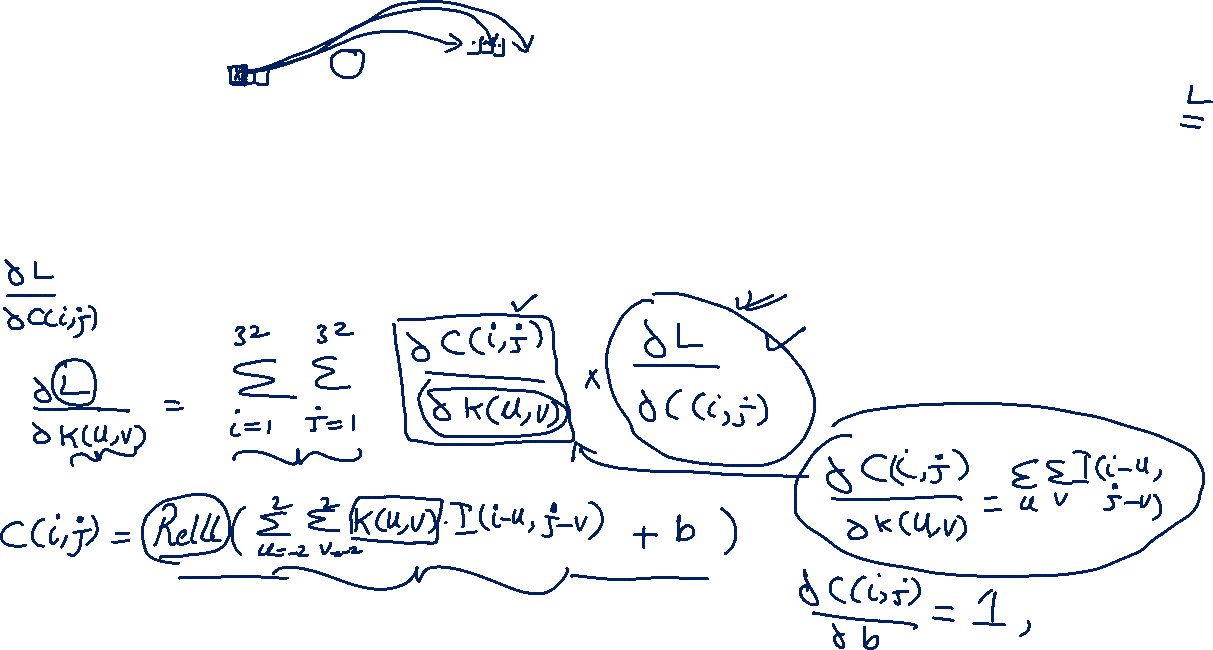 L
∂L/∂C(i,j)
∂L/∂K(u,v) = Σ_{i=1}^{32} Σ_{j=1}^{32} ∂C(i,j)/∂K(u,v) × ∂L/∂C(i,j)
∂C(i,j)/∂K(u,v) = Σ_u Σ_v I(i-u, j-v)
C(i,j) = Relu( Σ_{u=-2}^{2} Σ_{v=-2}^{2} K(u,v)·I(i-u, j-v) + b )
∂C(i,j)/∂b = 1,